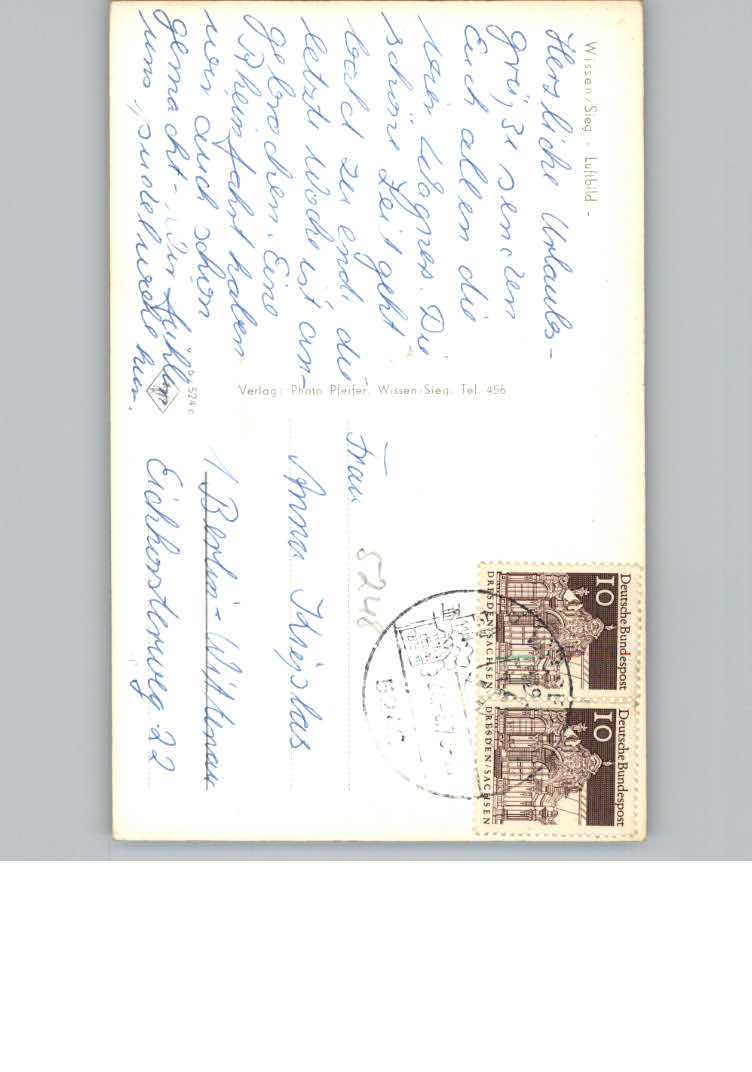 Wissen/Sieg - Luftbild -
Herzliche Urlaubs-
grüße senden
Euch allen die
vier Wagner. Die
schöne Zeit geht
bald zu ende die
letzte Woche ist an-
gebrochen. Eine
Rheinfahrt haben
wir auch schon
gemacht. Wir fühlen
uns pudelwohl hier.
Verlag: Photo Pfeifer, Wissen/Sieg, Tel. 456
524 c
Frau
Anna
1 Berlin-Wittenau
Eichhorsterweg 22
5248
Deutsche Bundespost
10
DRESDEN/SACHSEN
Deutsche Bundespost
10
DRESDEN/SACHSEN